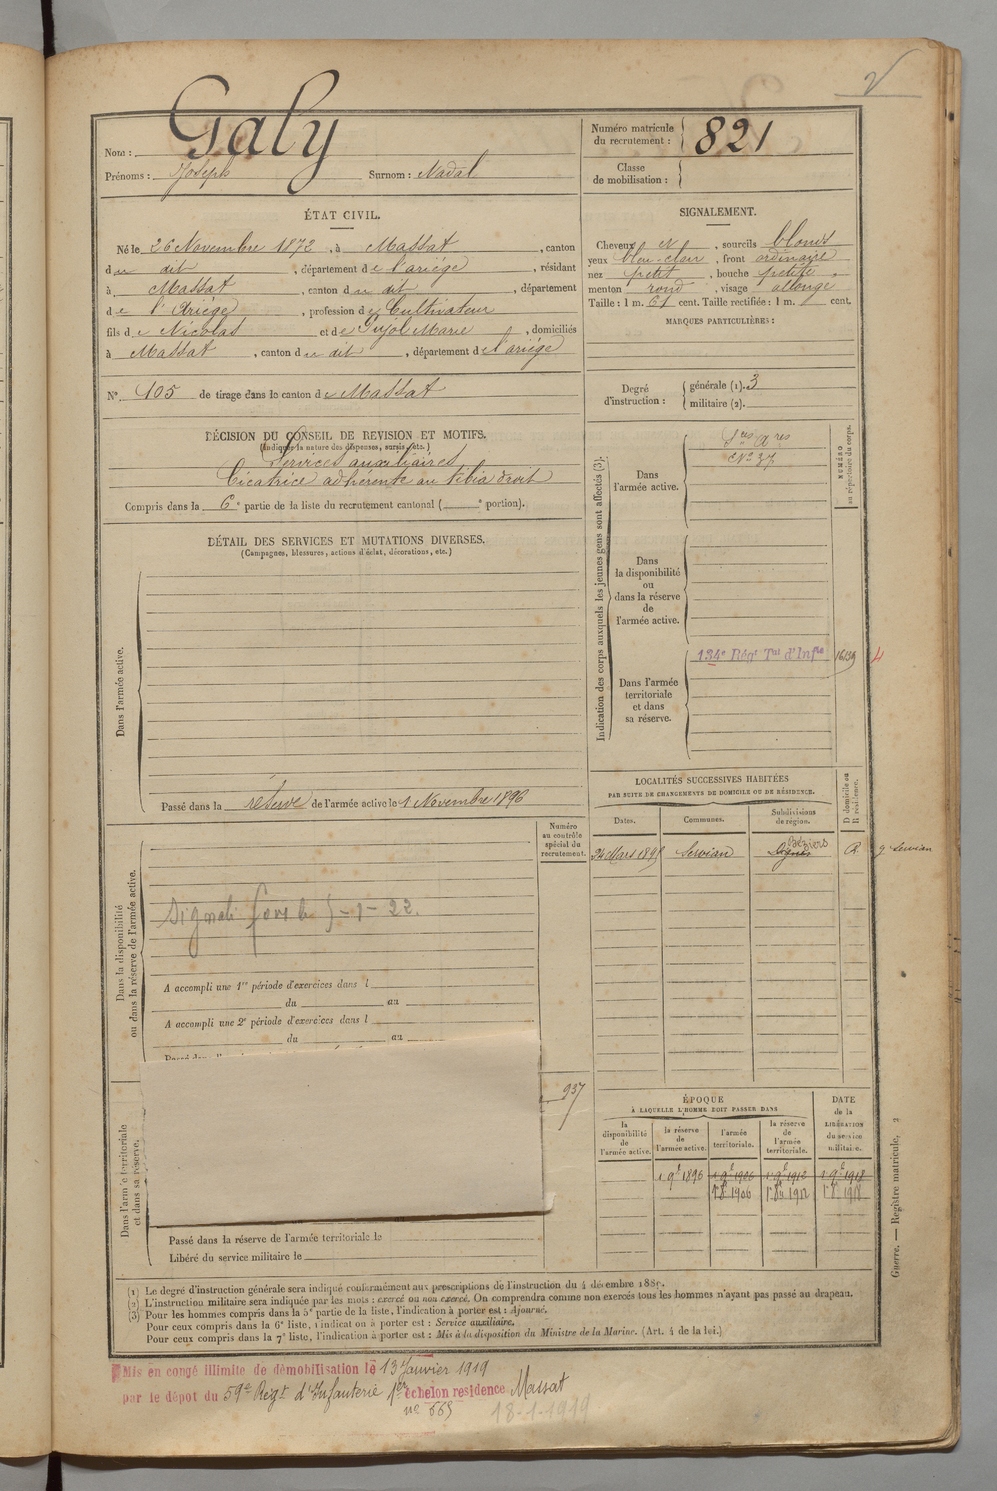 Nom : Galy
Prénoms : Joseph Surnom : Nadal
Numéro matricule du recrutement : 821
Classe de mobilisation :
ÉTAT CIVIL.
Né le 26 Novembre 1872, à Massat, canton
du dit, département de l'ariége, résidant
à Massat, canton du dit, département
de l'Ariége, profession de Cultivateur
fils de Nicolas et de Pujol Marie, domiciliés
à Massat, canton du dit, département de l'ariége
SIGNALEMENT.
Cheveux N, sourcils blonds
yeux bleu-clair, front ordinaire
nez petit, bouche petite,
menton rond, visage allongé
Taille : 1 m. 61 cent. Taille rectifiée : 1 m. cent.
MARQUES PARTICULIÈRES :
N° 105 de tirage dans le canton de Massat
Degré d'instruction : générale (1). 3
militaire (2).
DÉCISION DU CONSEIL DE REVISION ET MOTIFS.
(Indiquer la nature des dispenses, sursis, etc.)
Services auxiliaires
Cicatrice adhérente au tibia droit
Compris dans la 6e partie de la liste du recrutement cantonal ( e portion).
DÉTAIL DES SERVICES ET MUTATIONS DIVERSES.
(Campagnes, blessures, actions d'éclat, décorations, etc.)
Dans l'armée active.
Passé dans la réserve de l'armée active le 1 Novembre 1896
Indication des corps auxquels les jeunes gens sont affectés (3).
NUMÉRO au répertoire du corps.
Dans l'armée active.
Sres Ares
N° 37
Dans la disponibilité ou dans la réserve de l'armée active.
Dans l'armée territoriale et dans sa réserve.
134e Régt Tal d'Infie 16139 4
LOCALITÉS SUCCESSIVES HABITÉES
PAR SUITE DE CHANGEMENTS DE DOMICILE OU DE RÉSIDENCE.
Dates. Communes. Subdivisions de région. D domicile ou R résidence.
Servian Béziers R. g Servian
Numéro au contrôle spécial du recrutement.
Dans la disponibilité ou dans la réserve de l'armée active.
A accompli une 1re période d'exercices dans l
du au
A accompli une 2e période d'exercices dans l
du au
937
Dans l'armée territoriale et dans sa réserve.
Passé dans la réserve de l'armée territoriale le
Libéré du service militaire le
ÉPOQUE
À LAQUELLE L'HOMME DOIT PASSER DANS
la disponibilité de l'armée active. la réserve de l'armée active. l'armée territoriale. la réserve de l'armée territoriale. DATE de la LIBÉRATION du service militaire.
1 9e 1896 1 9e 1906 1 9e 1912 1 9e 1918
Guerre. — Registre matricule, 2
(1) Le degré d'instruction générale sera indiqué conformément aux prescriptions de l'instruction du 4 décembre 1889.
(2) L'instruction militaire sera indiquée par les mots : exercé ou non exercé. On comprendra comme non exercés tous les hommes n'ayant pas passé au drapeau.
(3) Pour les hommes compris dans la 5e partie de la liste, l'indication à porter est : Ajourné.
Pour ceux compris dans la 6e liste, l'indication à porter est : Service auxiliaire.
Pour ceux compris dans la 7e liste, l'indication à porter est : Mis à la disposition du Ministre de la Marine. (Art. 4 de la loi.)
Mis en congé illimité de démobilisation le 13 Janvier 1919
par le dépôt du 59e Régt d'Infanterie 1er échelon residence Massat
no 665 18-1-1919